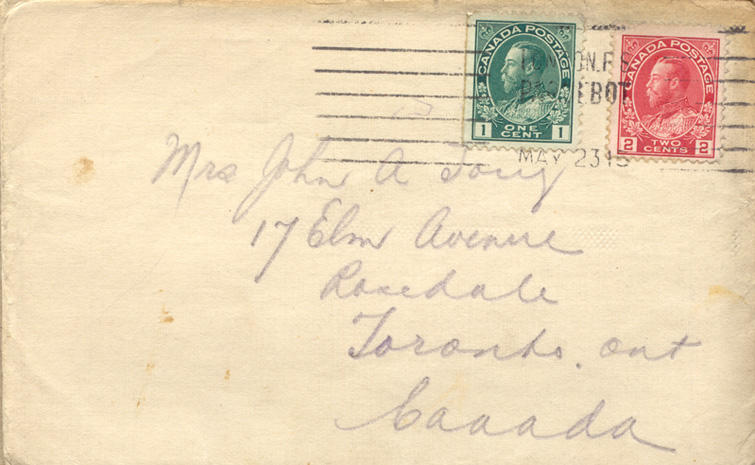 CANADA POSTAGE
1 ONE CENT 1
CANADA POSTAGE
2 TWO CENTS 2
MAY 23 15
Mrs John A
17 Elm Avenue
Rosedale
Toronto. Ont
Canada